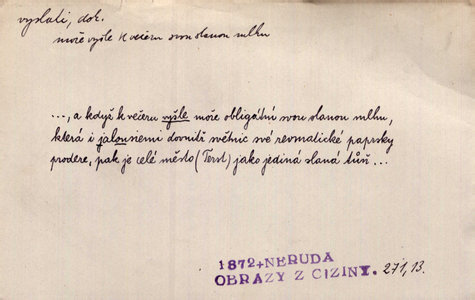 vyslati, dok.
moře vyšle k večeru svou slanou mlhu
..., a když k večeru vyšle moře obligátní svou slanou mlhu,
která i jalousiemi dovnitř světnic své revmatické paprsky
prodere, pak je celé město (Terst) jako jediná slaná tůň ...
1872+NERUDA
OBRAZY Z CIZINY. 271,13.